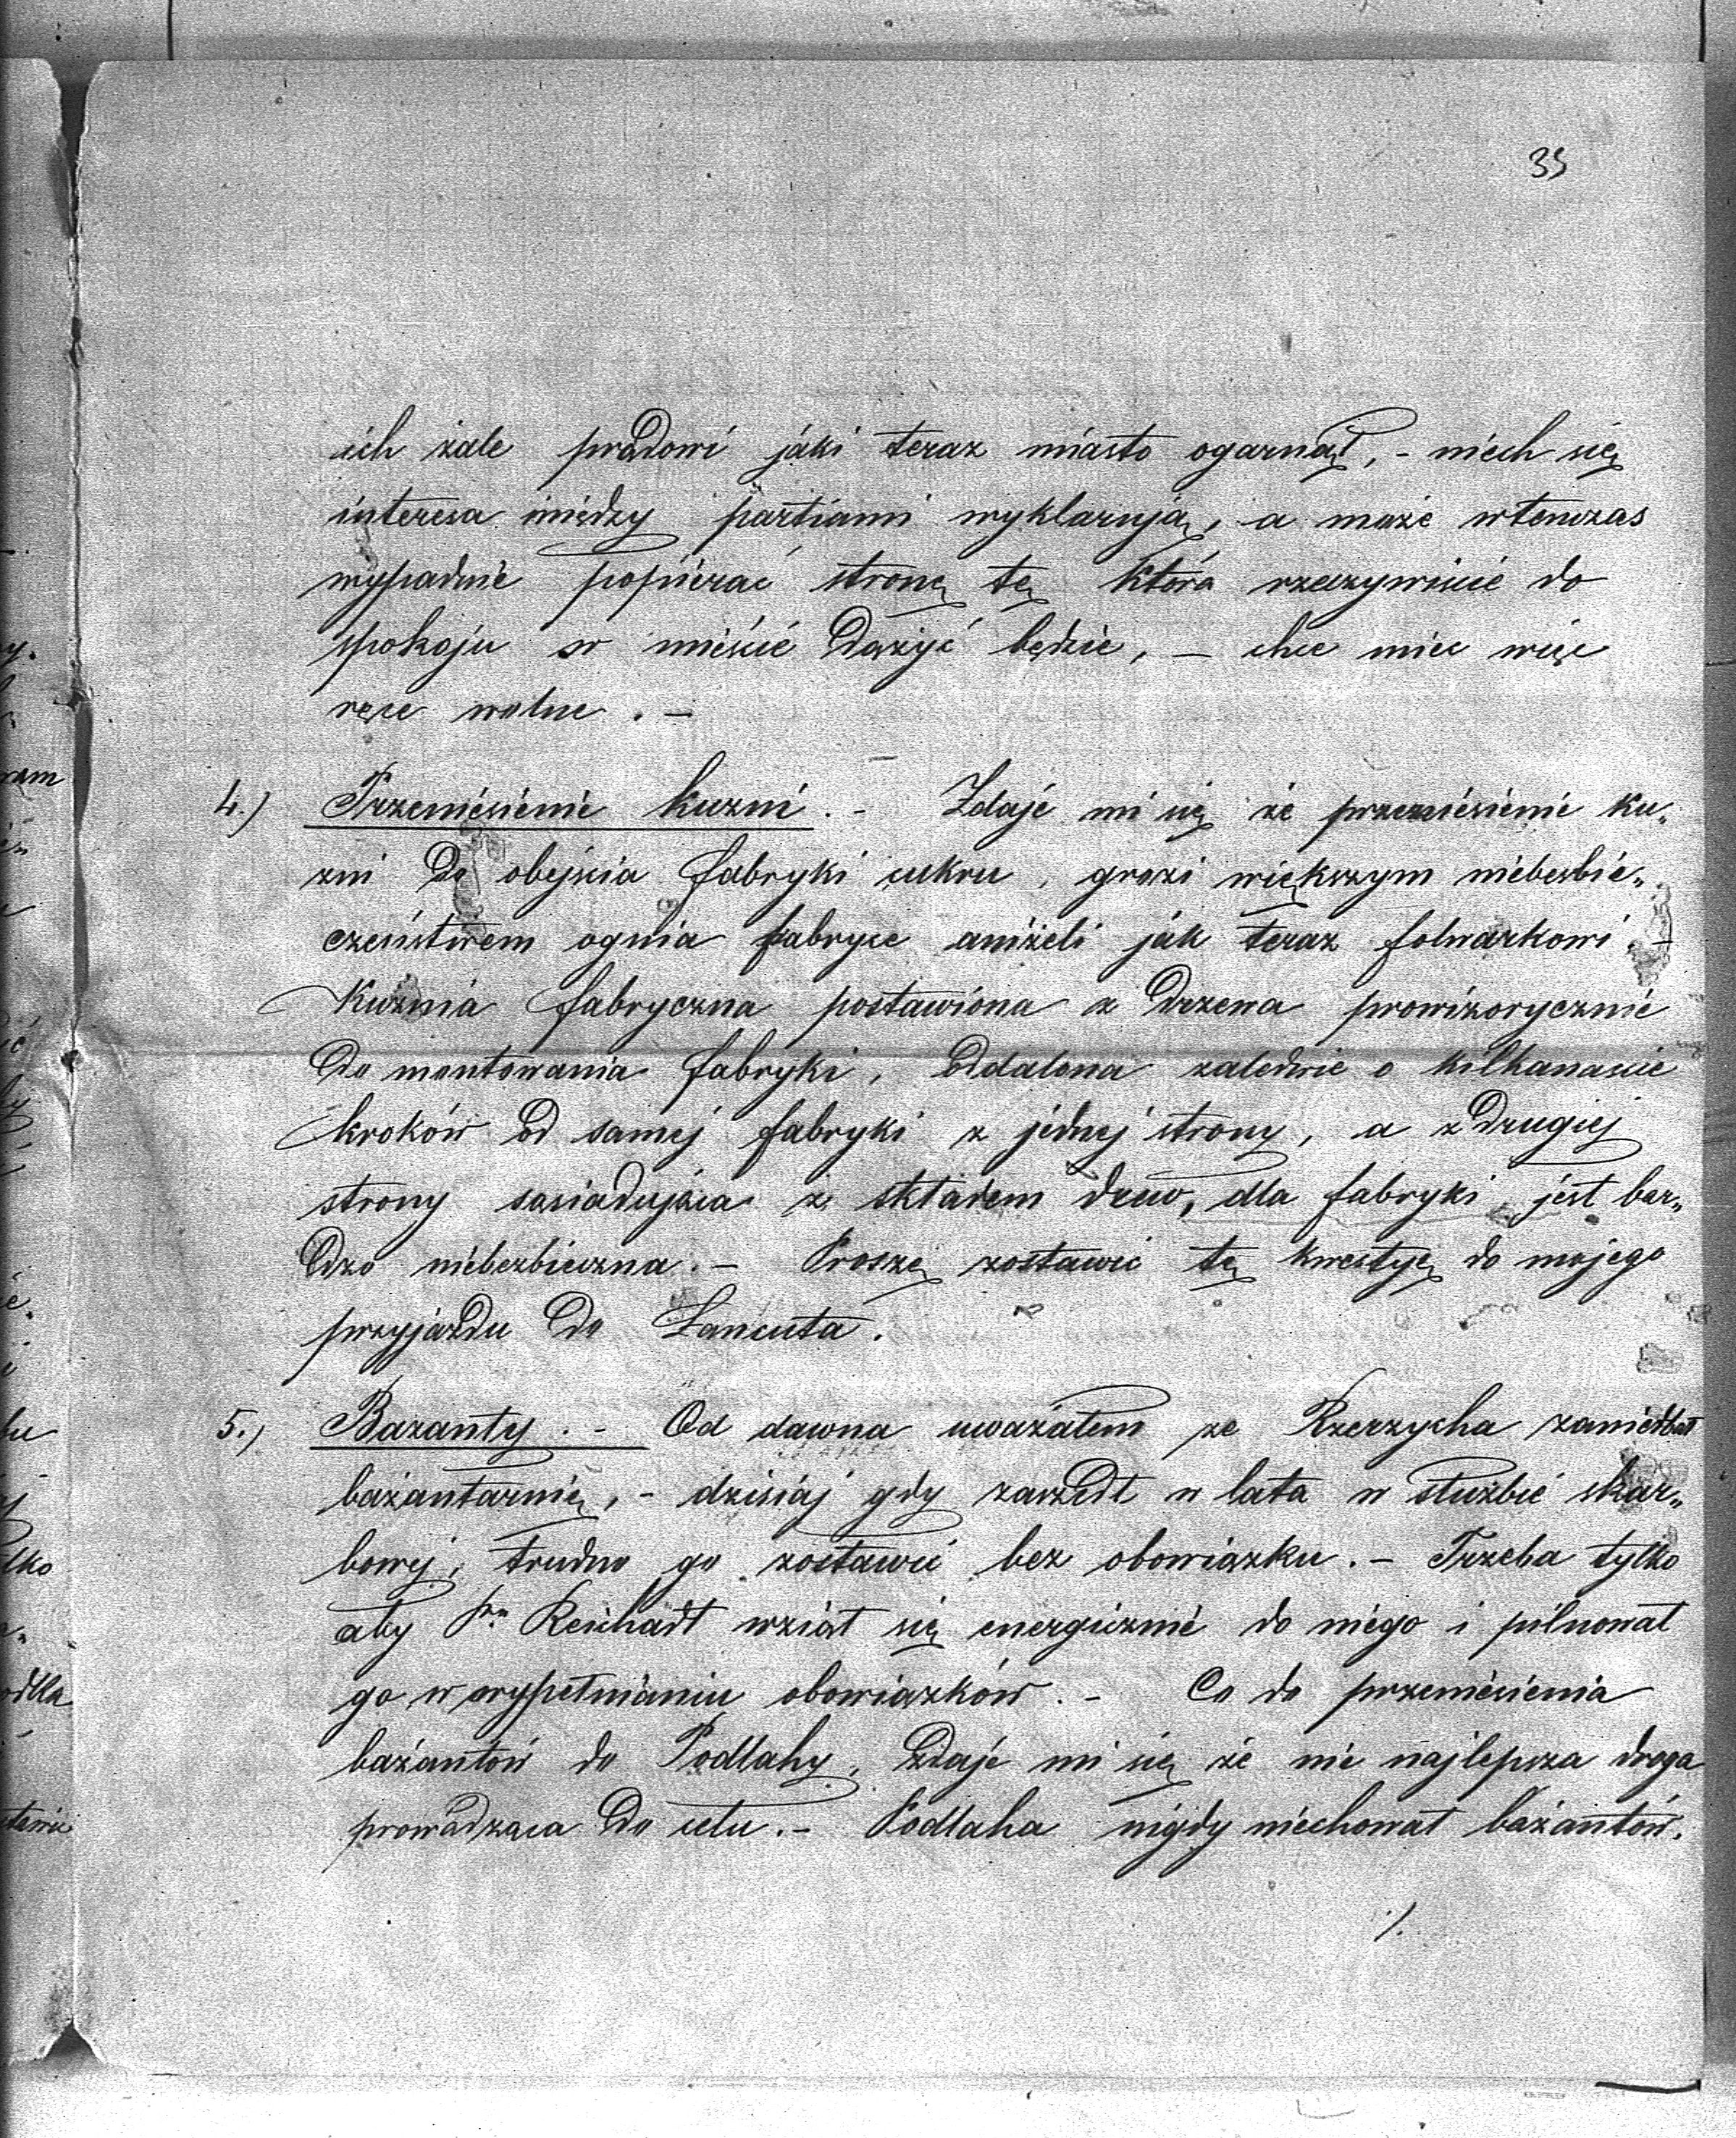 35
ich żale prądowi jaki teraz miasto ogarnął, - niech się
interesa między partiami wyklarują, a może wtenczas
wypadnie popierać stronę tę która rzeczywiście do
spokoju w mieście dążyć będzie, - chcę mieć więc
ręce wolne. -
4.) Przeniesienie kuzni. - Zdaje mi się że przeniesienie ku„
zni do obejscia fabryki cukru, grozi większym niebezbie„
czeństwem ognia fabryce aniżeli jak teraz folwarkowi. -
Kuźnia fabryczna postawiona z drzewa prowizorycznie
do montowania fabryki, oddalona zaledwie o kilkanascie
kroków od samej fabryki z jednej strony, a z drugiej
strony sasiadująca z składem drzew, dla fabryki jest bar„
dzo niebezbieczna. - Proszę zostawić tę kwestyę do mojego
przyjazdu do Łancuta.
5.) Bazanty. - Od dawna uważałem że Rzerzycha zaniedbał
bażantarnię, - dzisiaj gdy zaszedł w lata w służbie skar„
bowej, trudno go zostawić bez obowiązku. - Trzeba tylko
aby Pn Reichadt wziął się energicznie do niego i pilnował
go w wypełnianiu obowiązków. - Co do przeniesienia
bażantów do Podlahy, zdaje mi się że nie najlepsza droga
prowadząca do celu. - Podlaha nigdy niechował bażantów.
./.